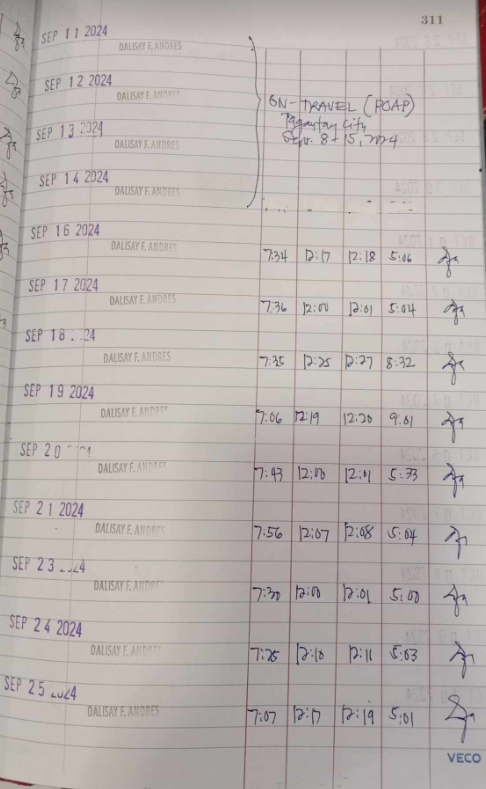 311
SEP 11 2024
DALISAY F. ANDRES
SEP 12 2024
DALISAY F. ANDRES
ON-TRAVEL (POAP)
Tagaytay City
Sep. 8-15, 2024
SEP 13 2024
DALISAY F. ANDRES
SEP 14 2024
DALISAY F. ANDRES
SEP 16 2024
DALISAY F. ANDRES
7:34 12:17 12:18 5:06
SEP 17 2024
DALISAY F. ANDRES
7:36 12:00 12:01 5:04
SEP 18 24
DALISAY F. ANDRES
7:35 12:25 12:27 8:32
SEP 19 2024
DALISAY F. ANDRES
7:06 12:19 12:20 9:01
SEP 20
DALISAY F. ANDRES
7:43 12:00 12:01 5:33
SEP 21 2024
DALISAY F. ANDRES
7:56 12:07 12:08 5:04
SEP 23 24
DALISAY F. ANDRES
7:30 12:00 12:01 5:00
SEP 24 2024
DALISAY F. ANDRES
7:25 12:10 12:11 5:03
SEP 25 2024
DALISAY F. ANDRES
7:07 12:17 12:19 5:01
VECO